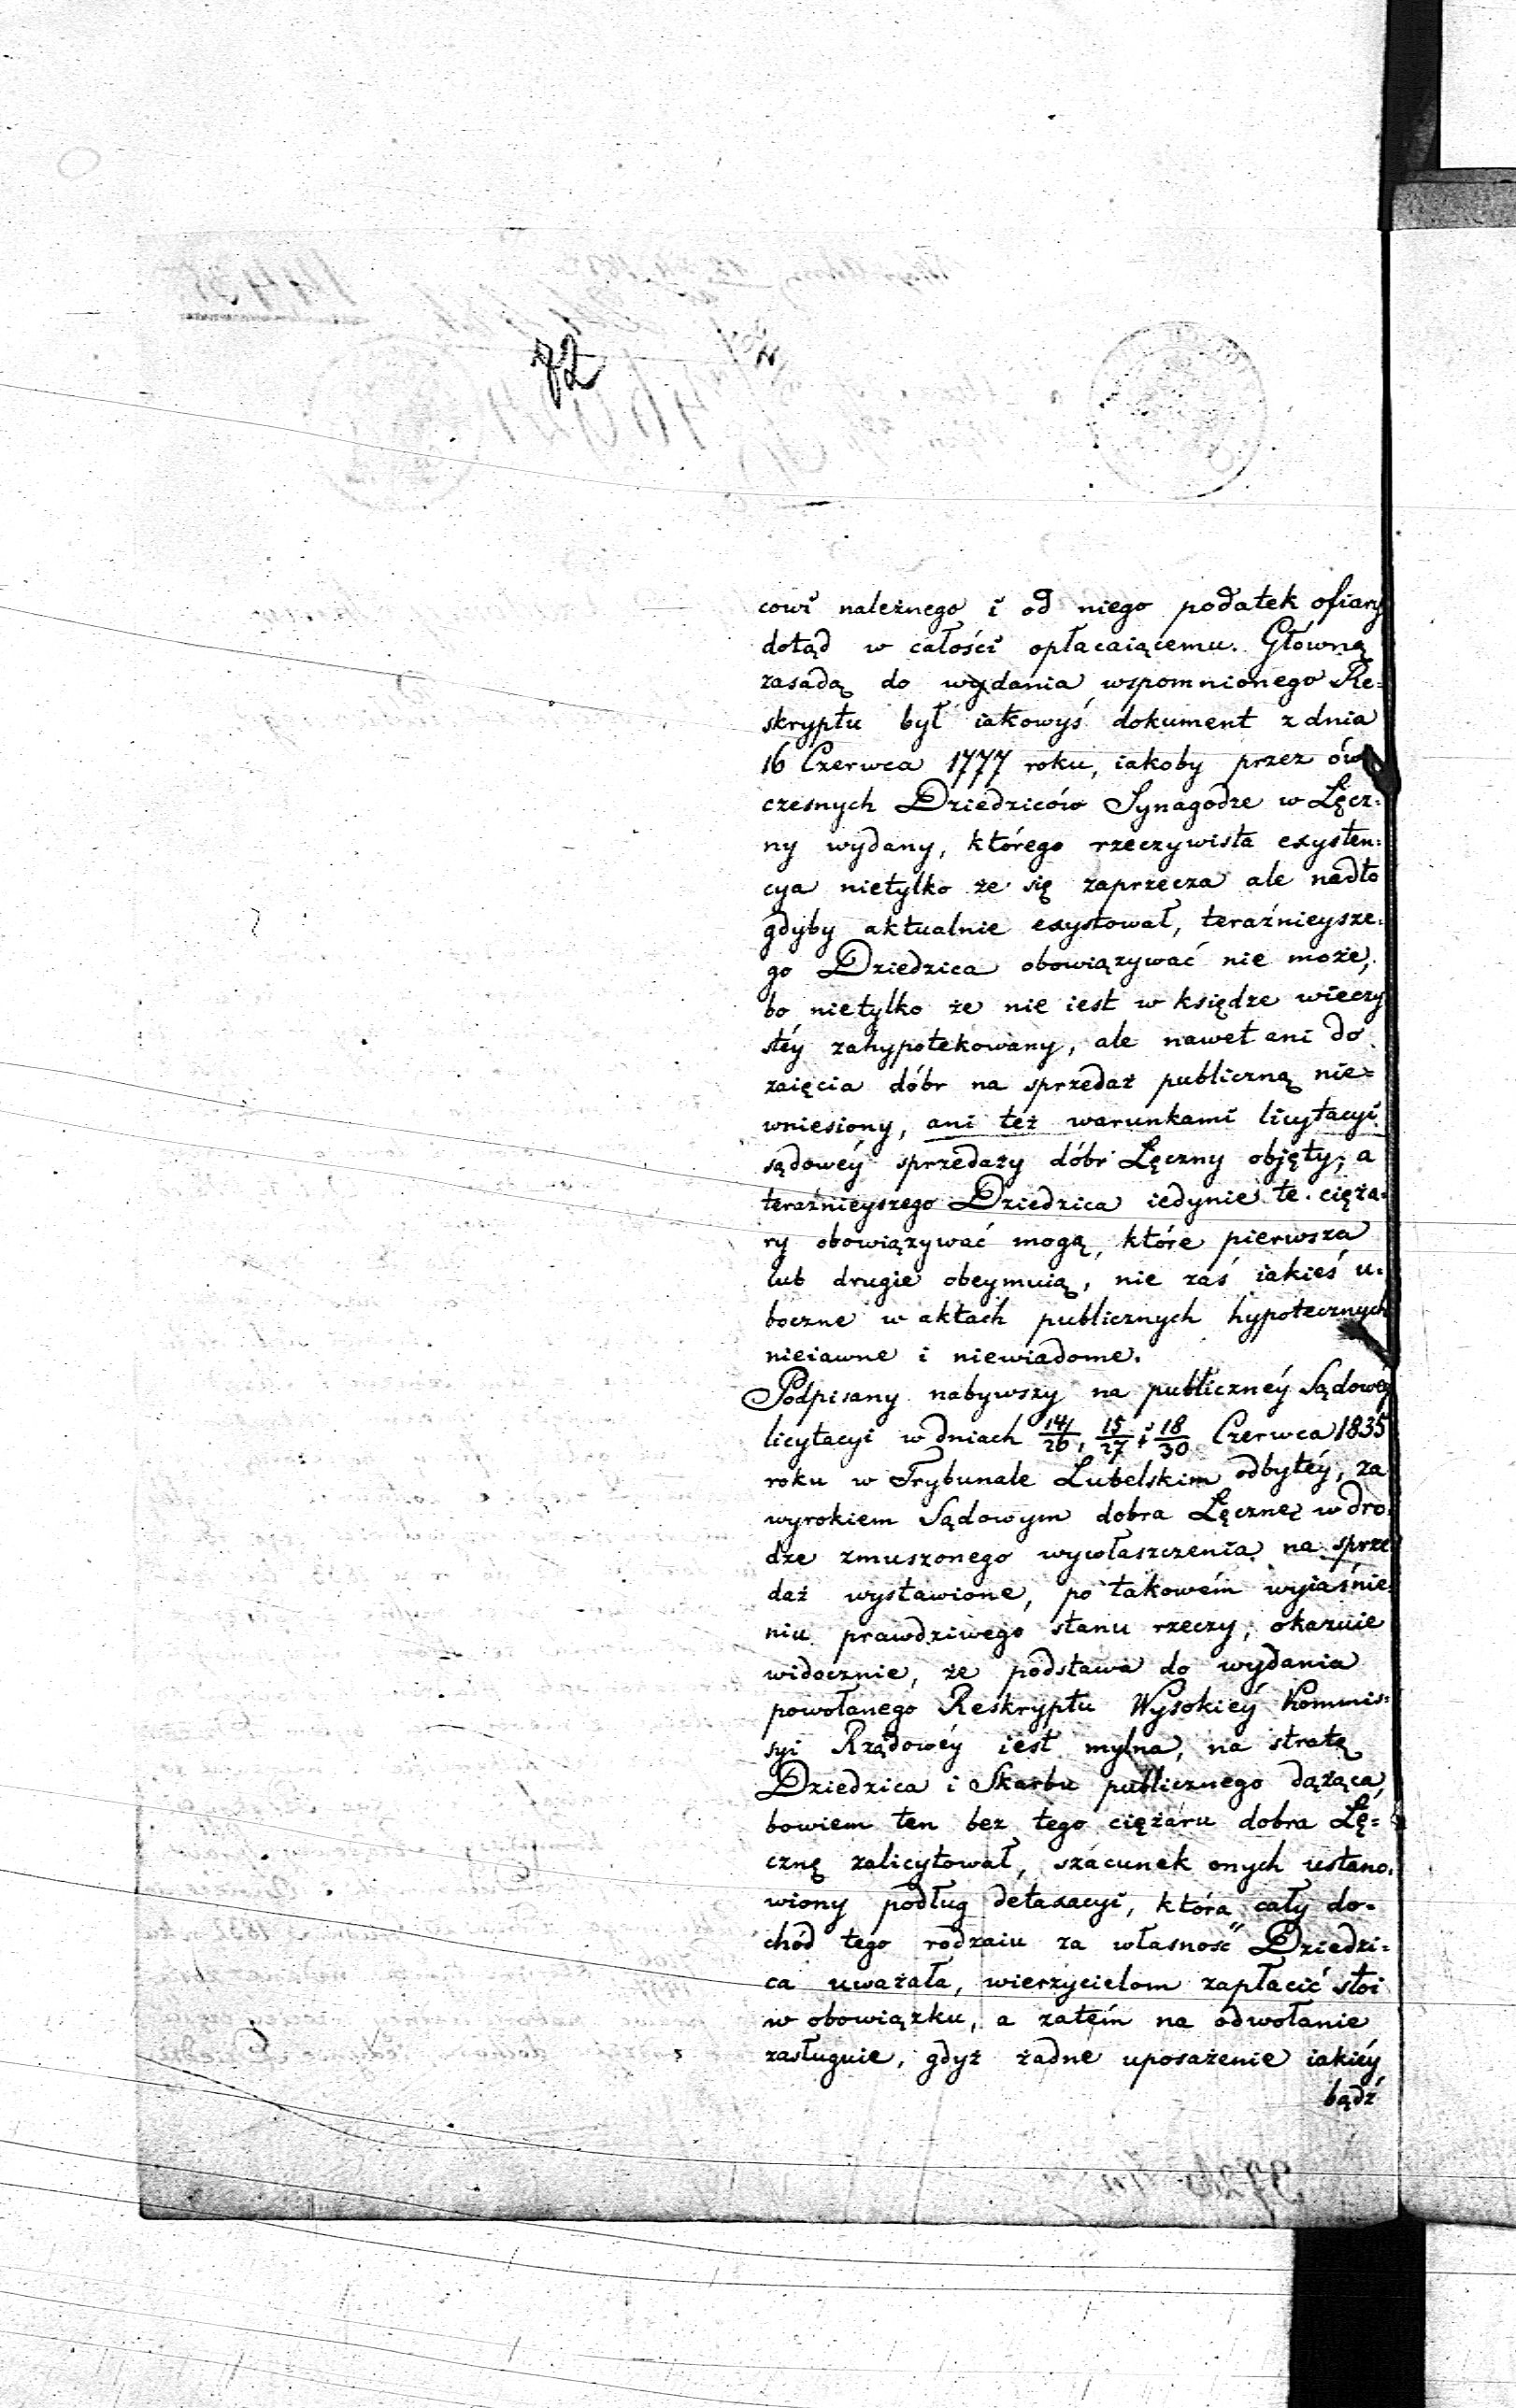 72
cowi należnego i od niego podatek ofiary
dotąd w całości opłacaiącemu. Główną
zasadą do wydania wspomnionego Re=
skryptu był iakowyś dokument z dnia
16 Czerwca 1777 roku, iakoby przez ów
czesnych Dziedziców Synagodze w Łęcz=
ny wydany, którego rzeczywista exysten=
cya nietylko że się zaprzecza ale nadto
gdyby aktualnie exystował, teraźnieysze=
go Dziedzica obowiązywać nie może,
bo nietylko że nie iest w księdze wieczy
stéy zahypotekowany, ale nawet ani do
zaięcia dóbr na sprzedaż publiczną nie=
wniesiony, ani też warunkami licytacyi
sądowéy sprzedaży dóbr Łęczny objęty; a
teraźnieyszego Dziedzica iedynie te cięża=
ry obowiązywać mogą, które pierwsza
lub drugie obeymuią, nie zaś iakieś u=
boczne w aktach publicznych hypotecznych
nieiawne i niewiadome.
Podpisany nabywszy na publicznéy Sądowéy
licytacyi w dniach 14/26, 15/27 i 18/30 Czerwca 1835
roku w Trybunale Lubelskim odbytéy, za
wyrokiem Sądowym dobra Łęcznę w dro=
dze zmuszonego wywłaszczenia na sprze
daż wystawione, po takowém wyiaśnie=
niu prawdziwego stanu rzeczy, okazuie
widocznie, że podstawa do wydania
powołanego Reskryptu Wysokiéy Kommis=
syi Rządowéy iest mylna, na stratę
Dziedzica i Skarbu publicznego dążąca,
bowiem ten bez tego ciężaru dobra Łę=
cznę zalicytował, szacunek onych ustano=
wiony podług detaxacyi, która cały do=
chód tego rodzaiu za własność Dziedzi=
ca uważała, wierzycielom zapłacić stoi
w obowiązku, a zatém na odwołanie
zasługuie, gdyż żadne uposażenie iakiéy
bądź